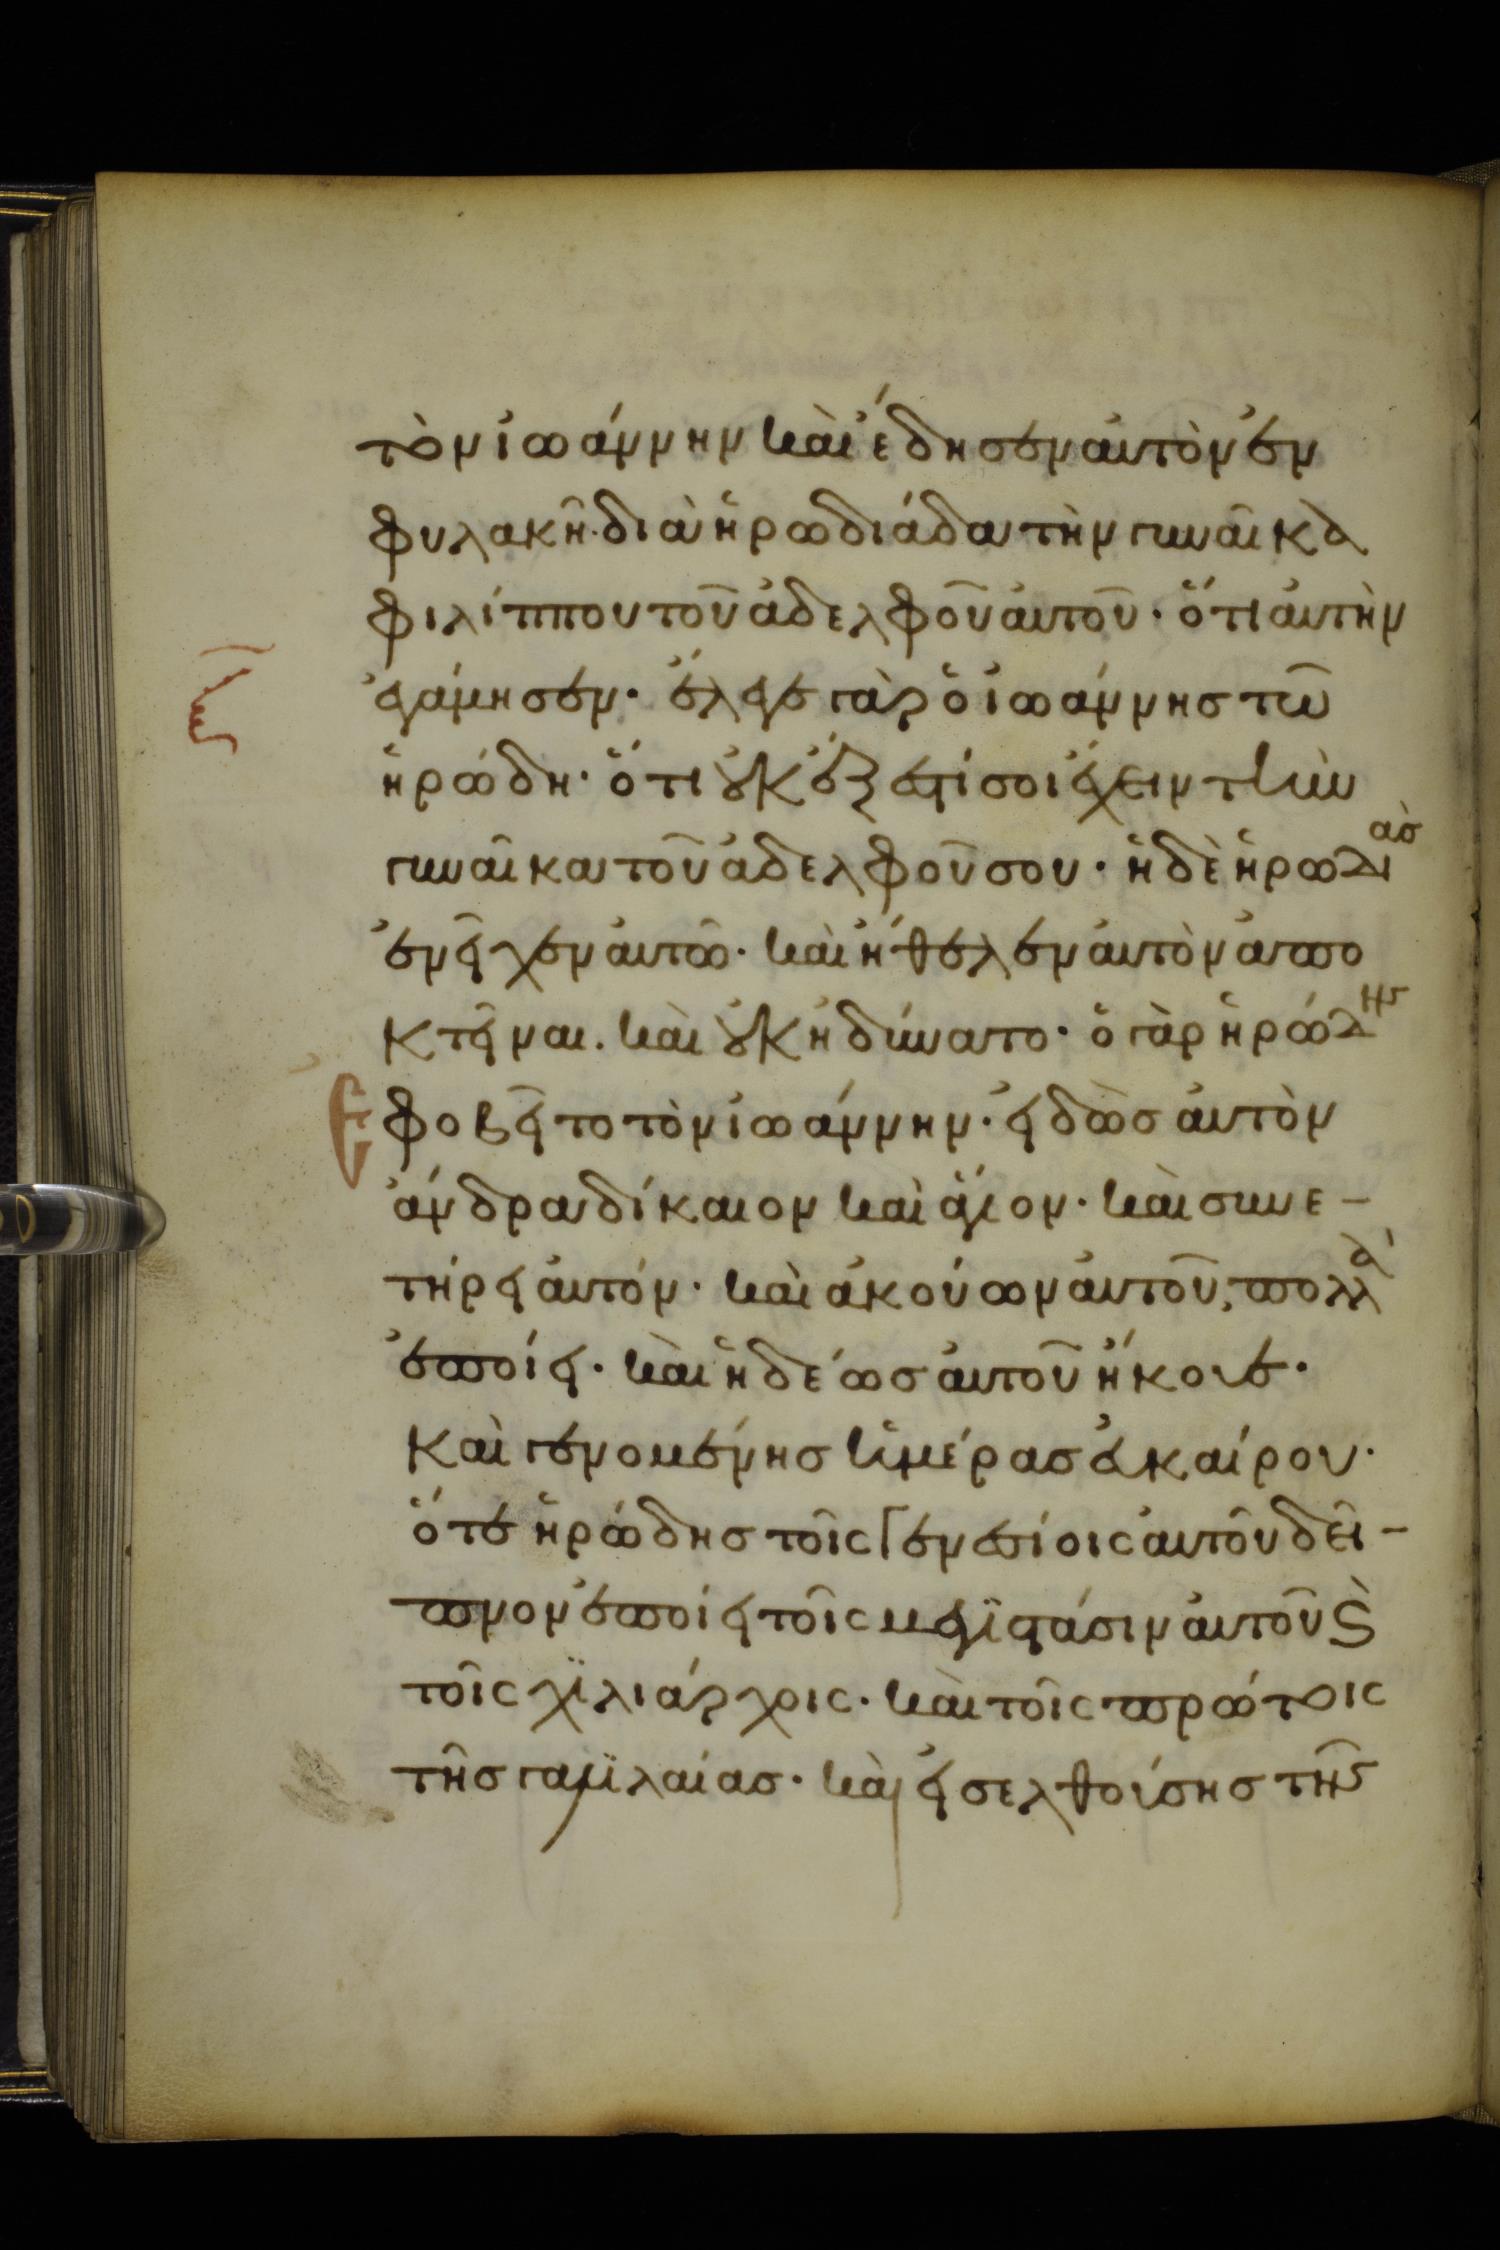 τὸν ἰωάννην καὶ ἔδησεν αὐτὸν ἐν
φυλακῆ· διὰ ἡρωδιάδα τὴν γυναῖκα
φιλίππου τοῦ ἀδελφοῦ αὐτοῦ· ὅτι αὐτὴν
ἐγάμησεν· ἔλεγε γὰρ ὁ ἰωάννης τῶ
ἡρώδη· ὅτι οὐκ ἔξεστί σοι ἔχειν τὴν
γυναῖκα τοῦ ἀδελφοῦ σου· ἡ δὲ ἡρωδιὰσ
ἐνεῖχεν αὐτῶ· καὶ ἤθελεν αὐτὸν ἀπο
κτεῖναι. καὶ οὐκ ἠδύνατο· ὁ γὰρ ἡρώδης
Ἐφοβεῖτο τὸν ἰωάννην· εἰδὼσ αὐτὸν
ἄνδρα δίκαιον καὶ ἅγιον· καὶ συνε-
τήρει αὐτόν· καὶ ἀκούων αὐτοῦ, πολλὰ
ἐποίει· καὶ ἡδέωσ αὐτοῦ ἤκουε·
Καὶ γενομένησ ἡμέρασ εὐκαίρου·
ὅτε ἡρώδησ τοῖς γενεσίοις αὐτοῦ δεῖ-
πνον ἐποίει τοῖς μεγϊστάσιν αὐτοῦ ϗ
τοῖς χϊλιάρχοις· καὶ τοῖς πρώτοις
τῆσ γαλϊλαίασ· καὶ εἰσελθούσησ τῆς